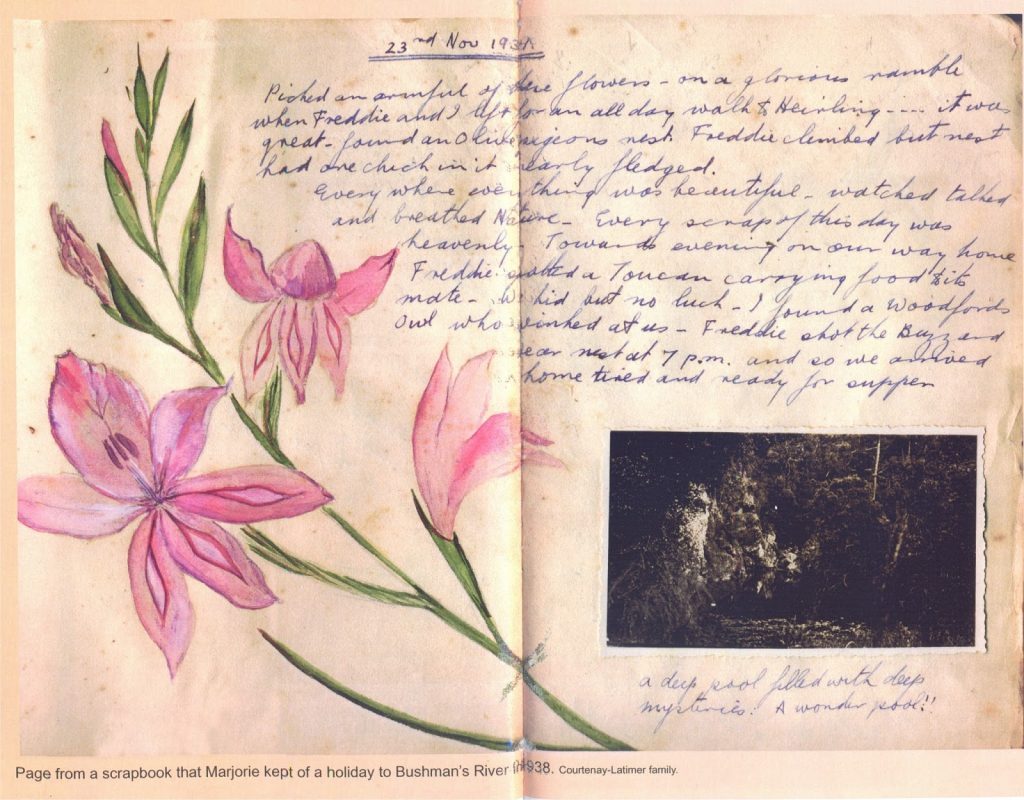 23rd Nov 193
Picked an armful of these flowers - on a glorious ramble
when Freddie and I left for an all day walk to Heirling ---- it was
great - found an Olive pigeons nest. Freddie climbed but nest
had one chick in it nearly fledged.
Every where everything was beautiful - watched talked
and breathed Nature - Every scrap of this day was
heavenly - Towards evening on our way home
Freddie spotted a Toucan carrying food to its
mate - We hid but no luck - I found a Woodfords
Owl who winked at us - Freddie shot the Buzzard
near nest at 7 p.m. and so we arrived
home tired and ready for supper
a deep pool filled with deep
mysteries: A wonder pool!!
Page from a scrapbook that Marjorie kept of a holiday to Bushman's River in 1938. Courtenay-Latimer family.